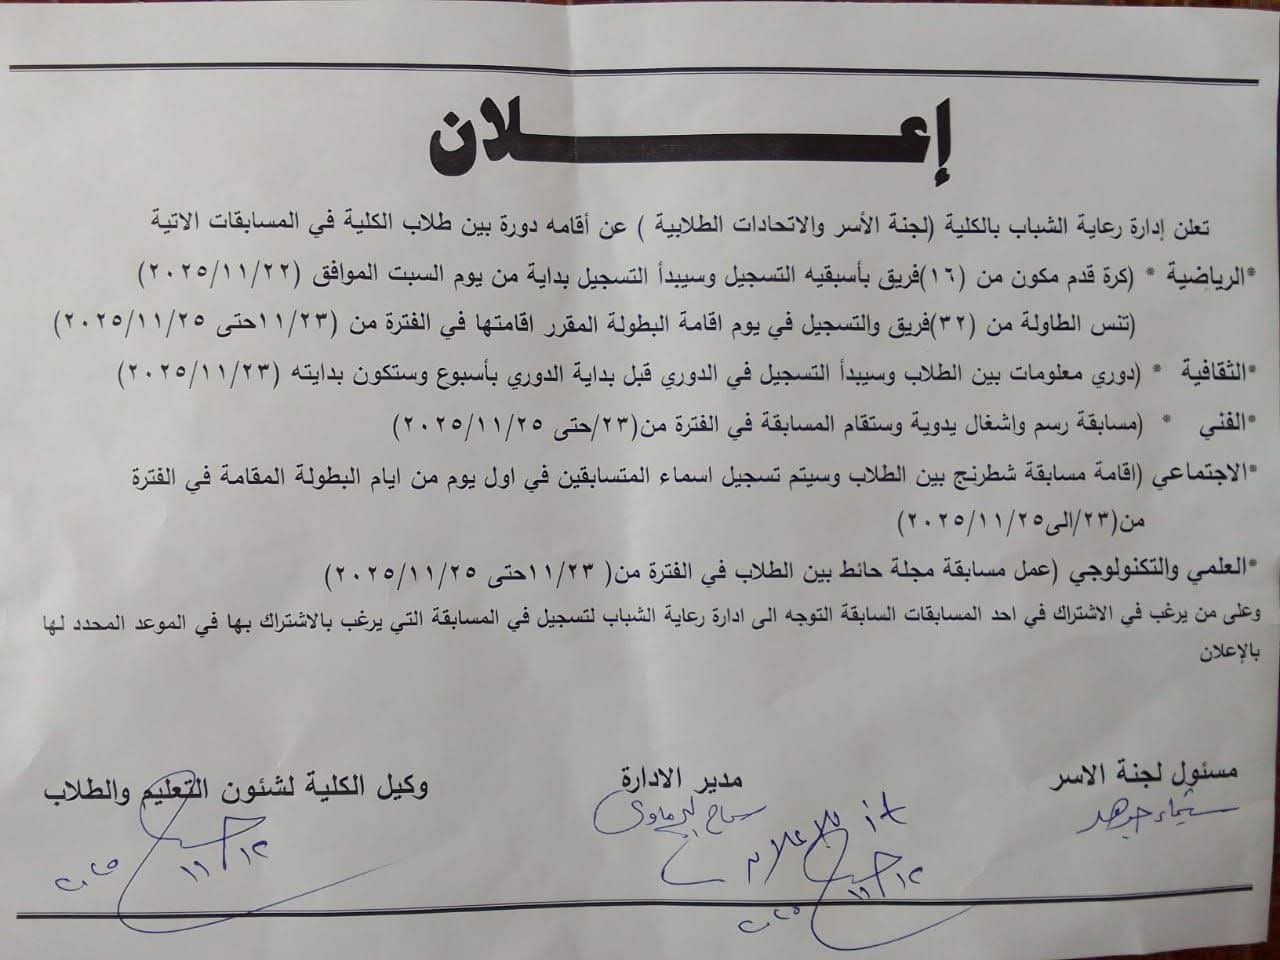 إعـــــلان
تعلن إدارة رعاية الشباب بالكلية (لجنة الأسر والاتحادات الطلابية ) عن أقامه دورة بين طلاب الكلية في المسابقات الاتية
*الرياضية * (كرة قدم مكون من (١٦)فريق بأسبقيه التسجيل وسيبدأ التسجيل بداية من يوم السبت الموافق (٢٠٢٥/١١/٢٢)
(تنس الطاولة من (٣٢)فريق والتسجيل في يوم اقامة البطولة المقرر اقامتها في الفترة من (١١/٢٣حتى ٢٠٢٥/١١/٢٥)
*الثقافية * (دوري معلومات بين الطلاب وسيبدأ التسجيل في الدوري قبل بداية الدوري بأسبوع وستكون بدايته (٢٠٢٥/١١/٢٣)
*الفني * (مسابقة رسم واشغال يدوية وستقام المسابقة في الفترة من(٢٣/حتى ٢٠٢٥/١١/٢٥)
*الاجتماعي (اقامة مسابقة شطرنج بين الطلاب وسيتم تسجيل اسماء المتسابقين في اول يوم من ايام البطولة المقامة في الفترة
من(٢٣/الى٢٠٢٥/١١/٢٥)
*العلمي والتكنولوجي (عمل مسابقة مجلة حائط بين الطلاب في الفترة من( ١١/٢٣حتى ٢٠٢٥/١١/٢٥)
وعلى من يرغب في الاشتراك في احد المسابقات السابقة التوجه الى ادارة رعاية الشباب لتسجيل في المسابقة التي يرغب بالاشتراك بها في الموعد المحدد لها
بالإعلان
مسئول لجنة الاسر
مدير الادارة
وكيل الكلية لشئون التعليم والطلاب
شيماء جوهر
سماح
للإعلان
١١/١٢
٢٠٢٥
١١/١٢
٢٠٢٥